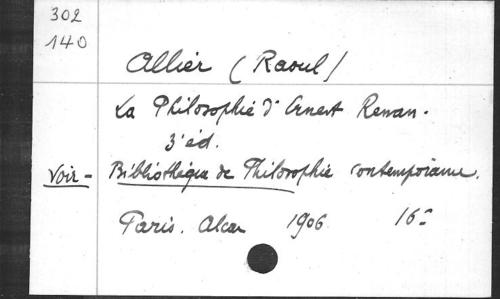 302
140
Allier (Raoul)
La Philosophie d'Ernest Renan.
3e éd.
Voir - Bibliothèque de Philosophie contemporaine.
Paris. Alcan 1906 16°